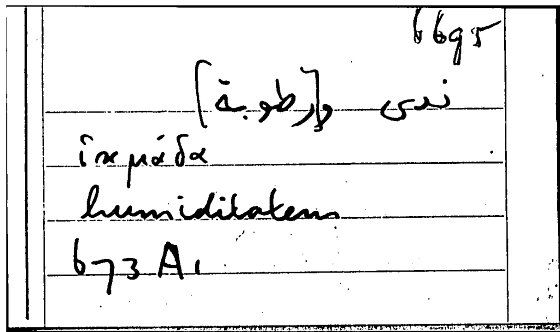 6695
ندى و[رطوبة]
ἰκμάδα
humiditatem
673 A1